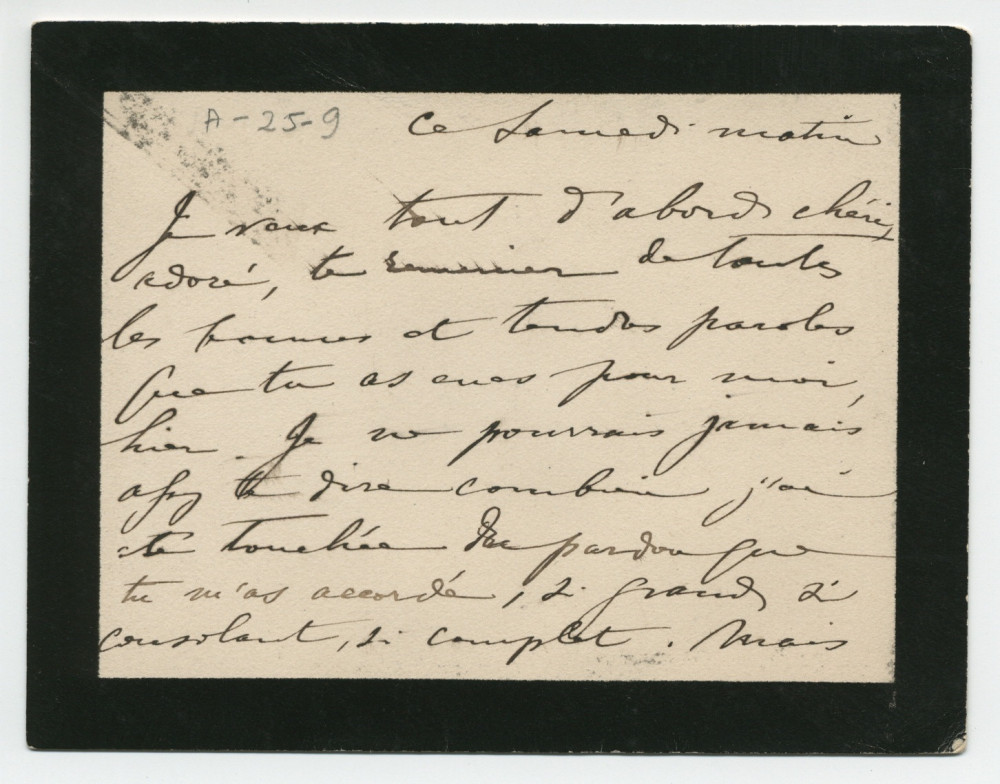 A-25-9
ce Samedi matin
Je veux tout d'abord, chéri,
adoré, te remercier de toutes
les bonnes et tendres paroles
que tu as eues pour moi,
hier. Je ne pourrais jamais
assez te dire combien j'ai
été touchée du pardon que
tu m'as accordé, si grand, si
consolant, si complet. Mais